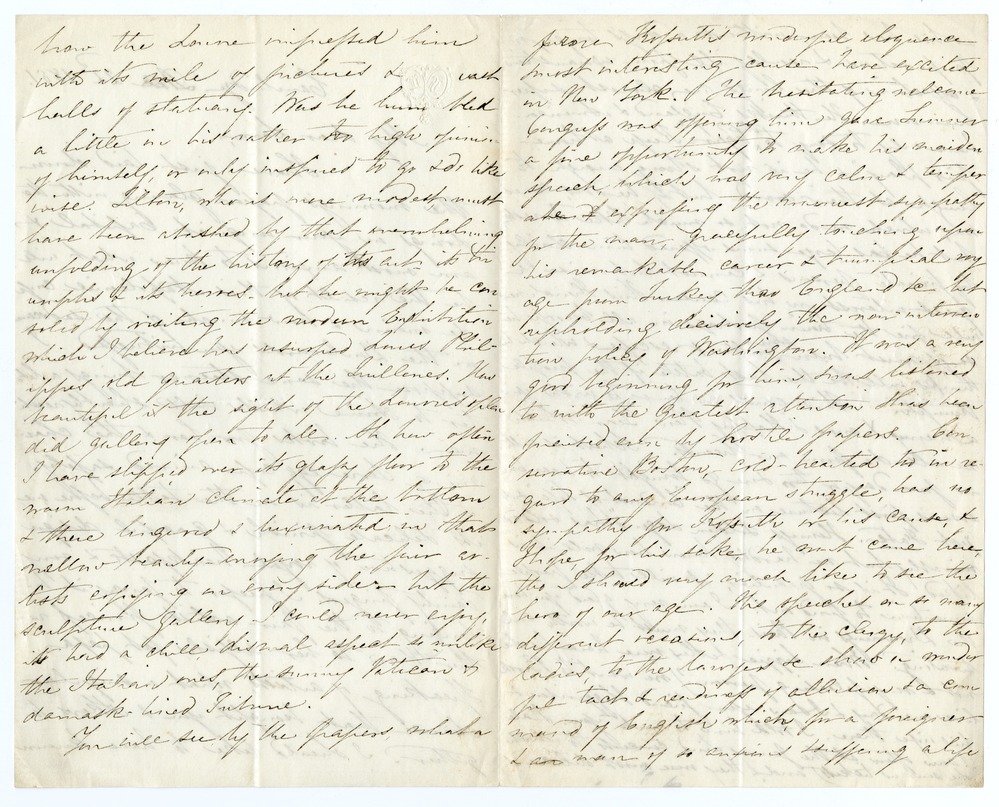 how the Louvre impressed him
with its mile of pictures & vast
halls of statuary. Was he humbled
a little in his rather too high opinion
of himself, or only inspired to go & do like
wise. Tilton, who is more modest must
have been abashed by that overwhelming
unfolding of the history of his art its tri
umphs & its heroes. but he might be con
soled by visiting the modern Exhibition
which I believe has usurped Louis Phil-
ippes old quarters at the Tuilleries. How
beautiful is the sight of the Louvre's splen
did gallery open to all. Ah how often
I have slipped over its glassy floor to the
warm Italian climate at the bottom
& there lingered & luxuriated in that
mellow beauty-envying the fair ar-
tists copying on every side- but the
sculpture gallery I could never enjoy,
it had a chill dismal aspect so unlike
the Italian ones, the sunny Vatican &
damask-lined Tribune.
You will see by the papers what a
furore Kossuth's wonderful eloquence
& most interesting cause have excited
in New York. The hesitating welcome
Congress was offering him gave Sumner
a fine opportunity to make his maiden
speech, which was very calm & temper
ate & expressing the warmest sympathy
for the man, gracefully touching upon
his remarkable career & triumphal voy
age from Turkey thro England &c but
upholding decisively the non interven
tion policy of Washington. It was a very
good beginning for him, was listened
to with the greatest attention & has been
praised even by hostile papers. Con
servative Boston, cold-hearted too in re-
gard to any European struggle, has no
sympathy for Kossuth or his cause, &
I hope for his sake he wont come here,
tho I should very much like to see the
hero of our age. His speeches on so many
different occasions, to the clergy, to the
ladies, to the lawyers &c show a wonder
ful tact & readiness of allusion & a com
mand of English which, for a foreigner
& a man of so anxious & suffering a life